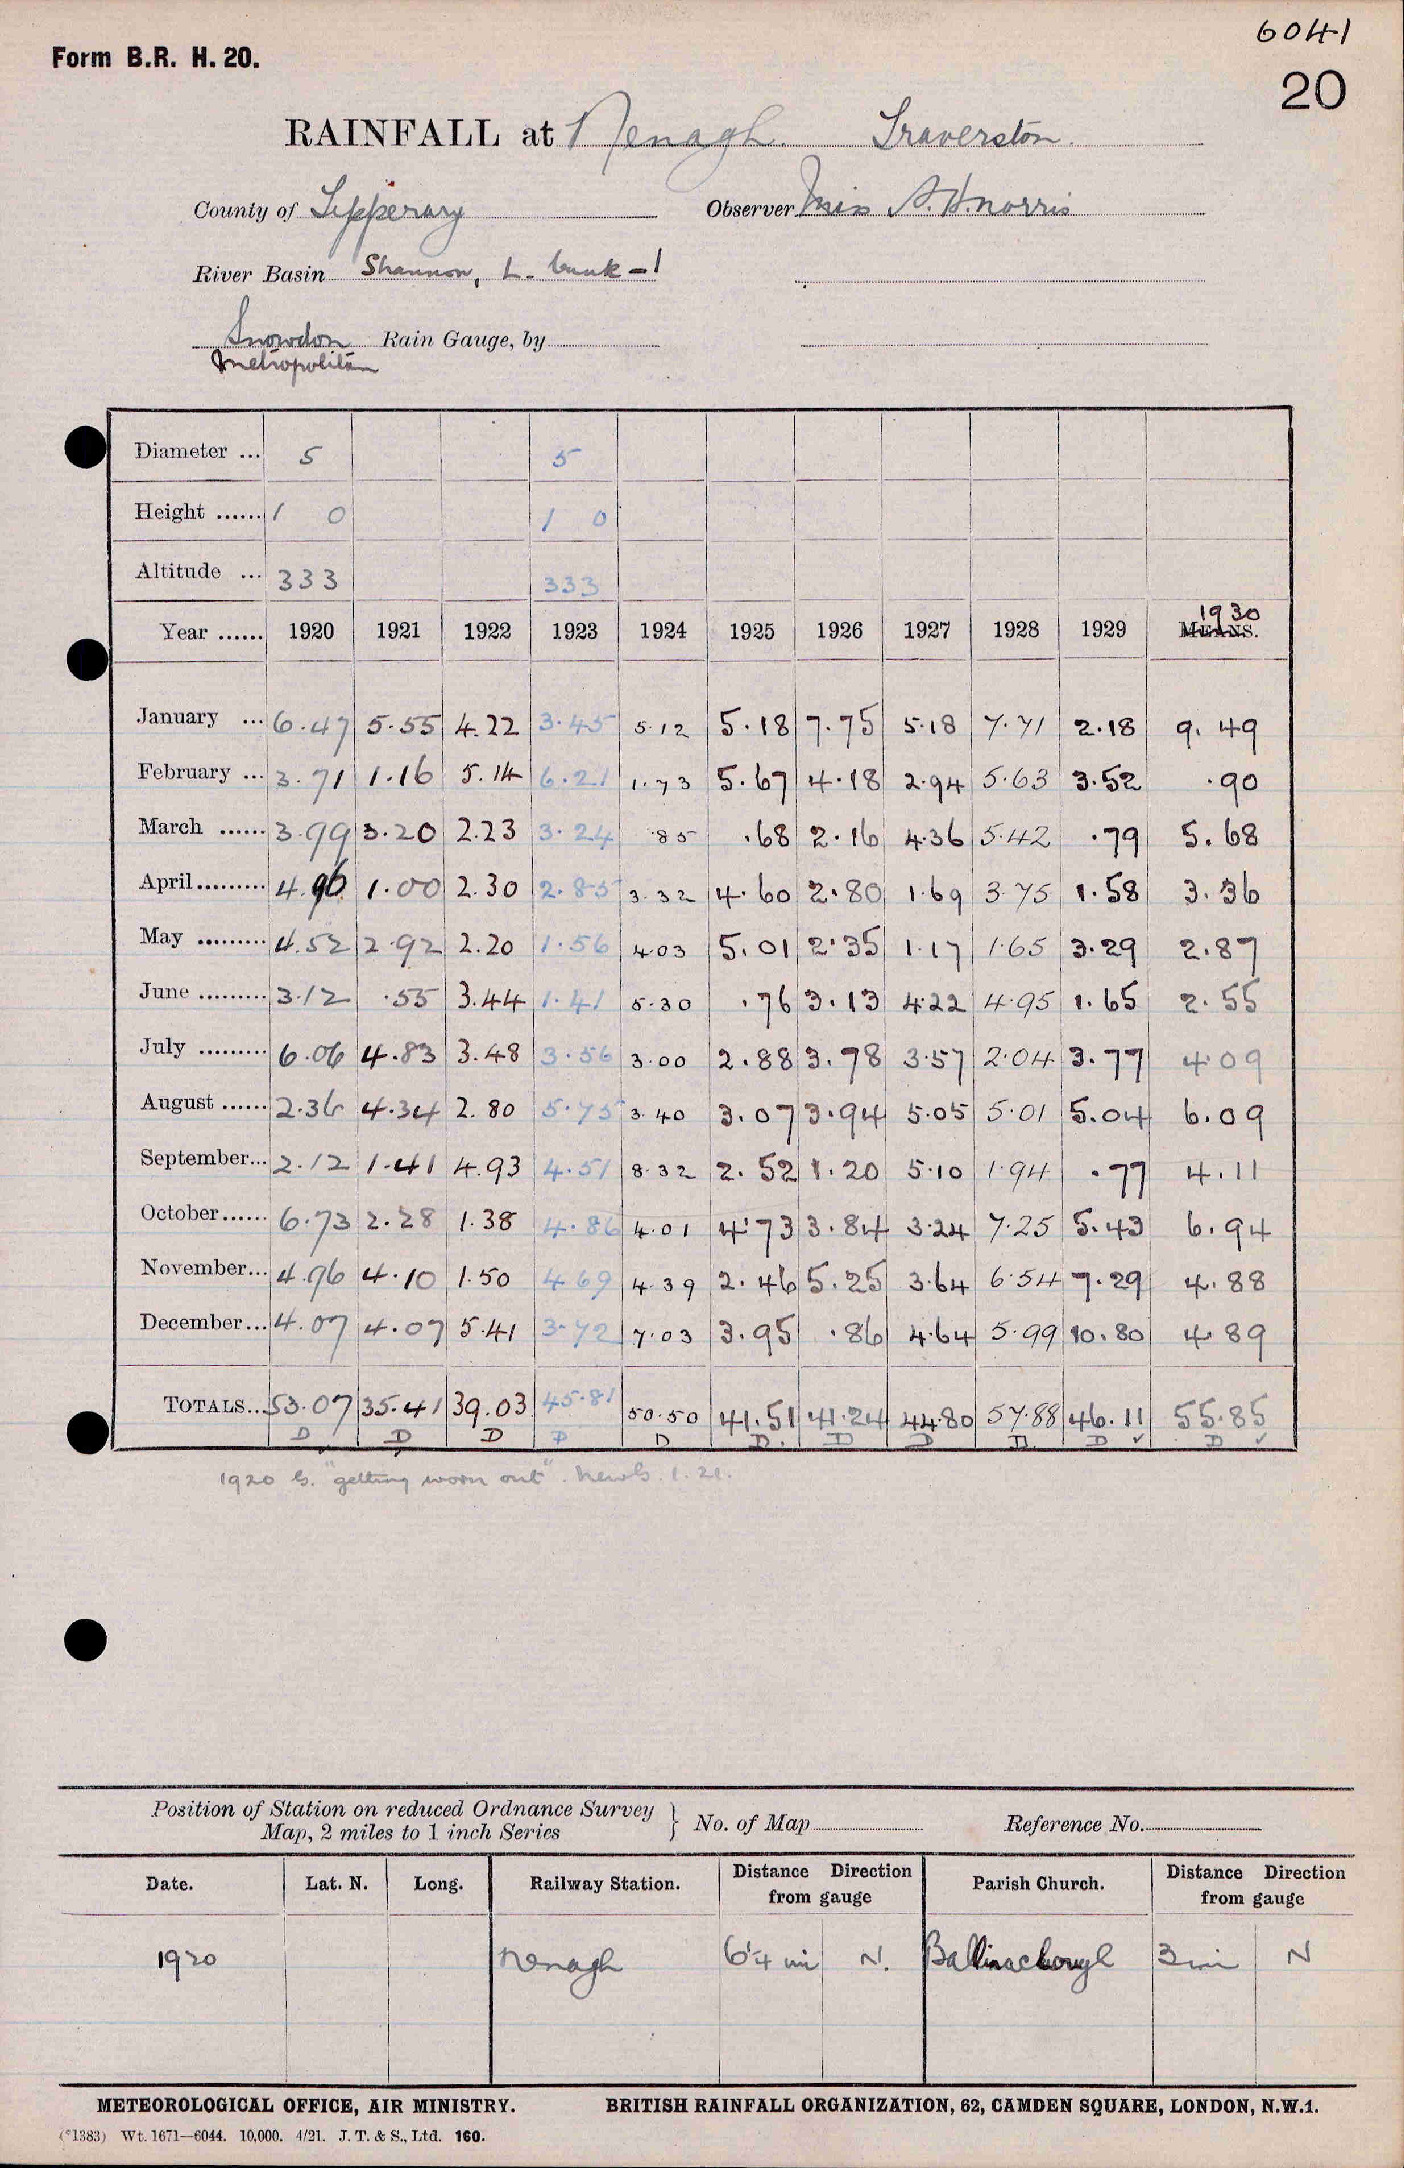 6041
Form B.R. H. 20.
20
RAINFALL at Nenagh. Traverston.
County of Tipperary Observer Miss A. H. Norris
River Basin Shannon, L. bank - 1
Snowdon Rain Gauge, by
Metropolitan
Diameter ... 5 5
Height ...... 1 0 1 0
Altitude ... 333 333
1930
Year ...... 1920 1921 1922 1923 1924 1925 1926 1927 1928 1929 MEANS.
January ... 6.47 5.55 4.22 3.45 5.12 5.18 7.75 5.18 7.71 2.18 9.49
February ... 3.71 1.16 5.14 6.21 1.73 5.67 4.18 2.94 5.63 3.52 .90
March ...... 3.99 3.20 2.23 3.24 .85 .68 2.16 4.36 5.42 .79 5.68
April ......... 4.96 1.00 2.30 2.85 3.32 4.60 2.80 1.69 3.75 1.58 3.36
May ......... 4.52 2.92 2.20 1.56 4.03 5.01 2.35 1.17 1.65 3.29 2.87
June ......... 3.12 .55 3.44 1.41 5.30 .76 3.13 4.22 4.95 1.65 2.55
July ......... 6.06 4.83 3.48 3.56 3.00 2.88 3.78 3.57 2.04 3.77 4.09
August ...... 2.36 4.34 2.80 5.75 3.40 3.07 3.94 5.05 5.01 5.04 6.09
September... 2.12 1.41 4.93 4.51 8.32 2.52 1.20 5.10 1.94 .77 4.11
October...... 6.73 2.28 1.38 4.86 4.01 4.73 3.84 3.24 7.25 5.43 6.94
November... 4.96 4.10 1.50 4.69 4.39 2.46 5.25 3.64 6.54 7.29 4.88
December... 4.07 4.07 5.41 3.72 7.03 3.95 .86 4.64 5.99 10.80 4.89
TOTALS... 53.07 35.41 39.03 45.81 50.50 41.51 41.24 44.80 57.88 46.11 55.85
D D D D D D. D D D D ✓ D ✓
1920 G. "getting worn out". New G. 1.21.
Position of Station on reduced Ordnance Survey
Map, 2 miles to 1 inch Series } No. of Map Reference No.
Date. Lat. N. Long. Railway Station. Distance Direction from gauge Parish Church. Distance Direction from gauge
1920 Nenagh 6¼ mi N. Ballinaclough 3 mi N
METEOROLOGICAL OFFICE, AIR MINISTRY. BRITISH RAINFALL ORGANIZATION, 62, CAMDEN SQUARE, LONDON, N.W.1.
(*1383) Wt. 1671—6044. 10,000. 4/21. J. T. & S., Ltd. 160.